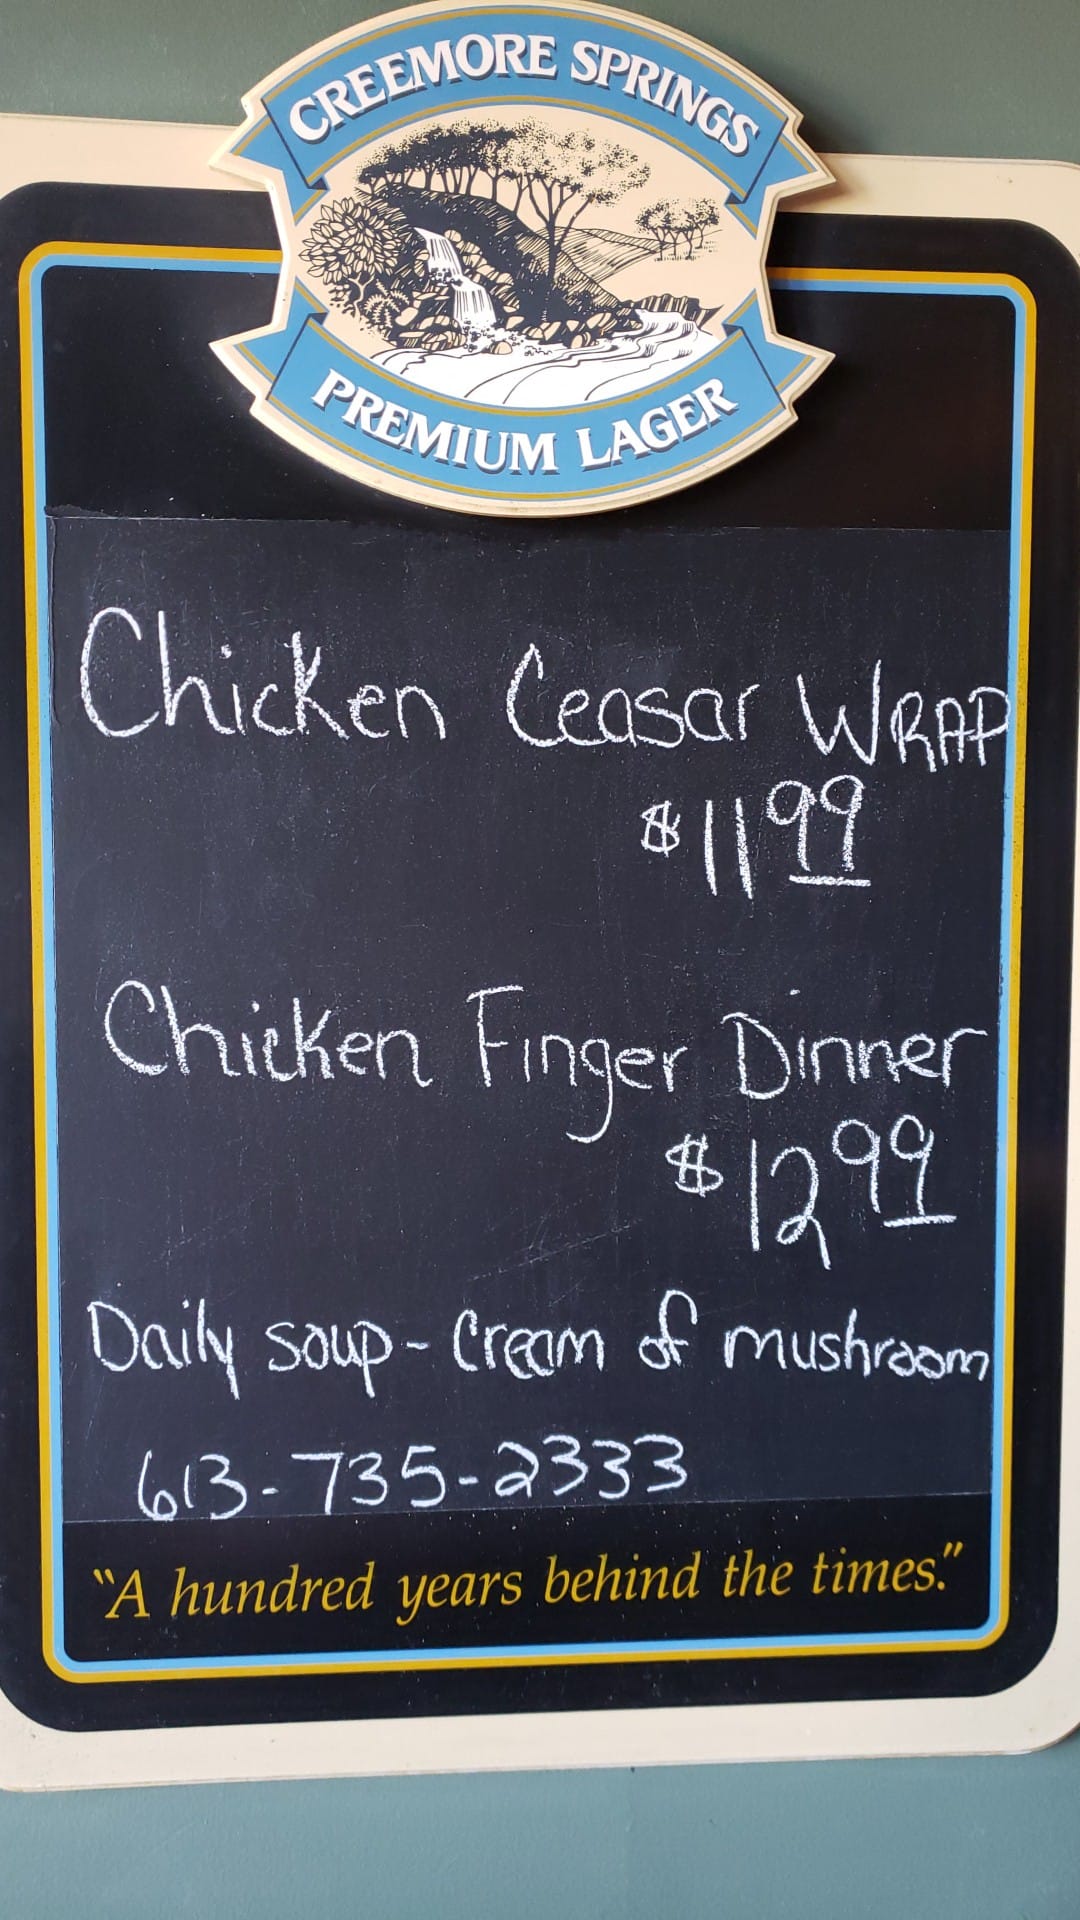 CREEMORE SPRINGS
PREMIUM LAGER
Chicken Ceasar WRAP
$11 99
Chicken Finger Dinner
$12 99
Daily soup - Cream of mushroom
613-735-2333
"A hundred years behind the times."